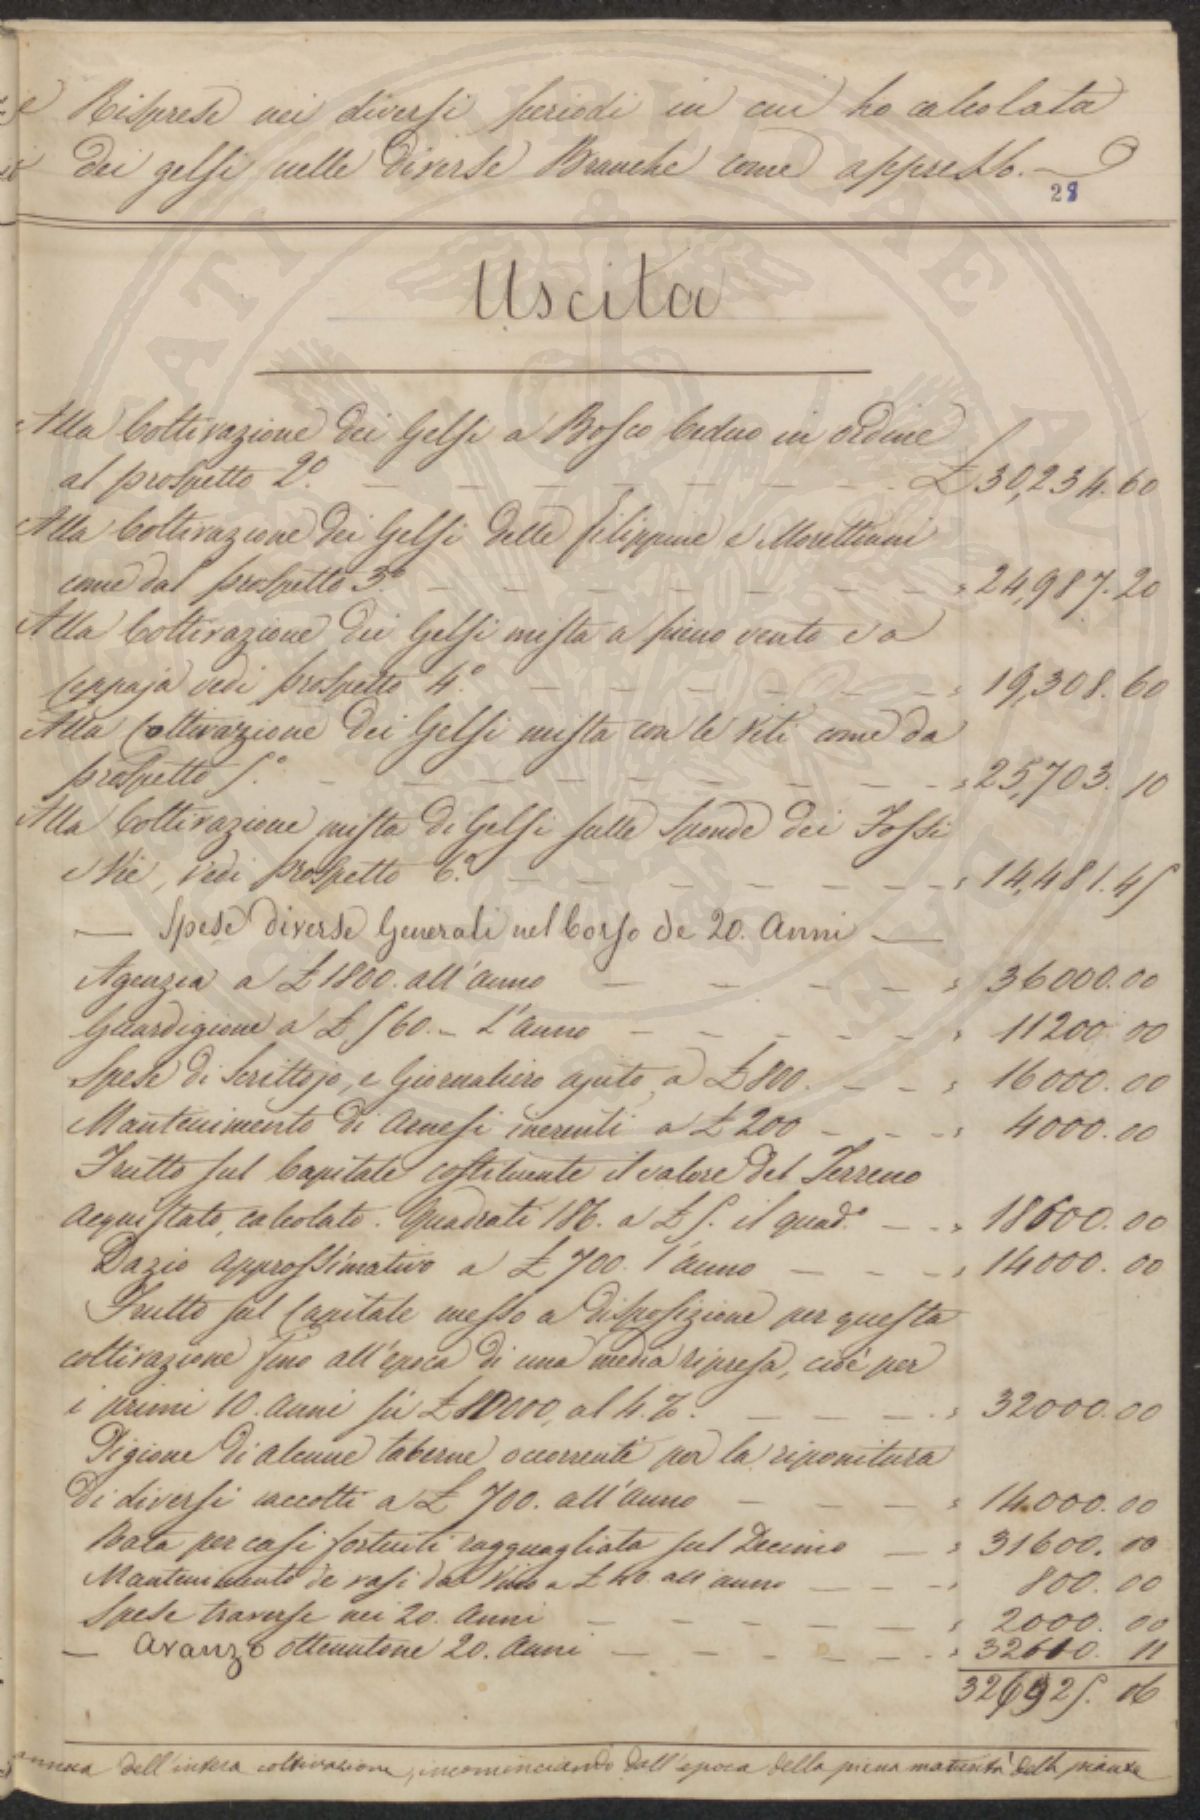 e Riprese nei diversi periodi in cui ho calcolata
dei gelsi nelle diverse Branche come appresso.
28
Uscita
Alla Coltivazione dei Gelsi a Bosco Ceduo in ordine
al prospetto 2.° £ 30,234.60
Alla Coltivazione dei Gelsi delle filippine e Morettiani
come dal prospetto 3.° 24,987.20
Alla Coltivazione dei Gelsi mista a pieno vento e a
Ceppaja vedi prospetto 4.° 19,308.60
Alla Coltivazione dei Gelsi mista con le Viti come da
prospetto 5.° 25,703.10
Alla Coltivazione mista di Gelsi sulle Sponde dei Fossi
e Vie, vedi prospetto 6.° 14,481.45
— Spese diverse Generali nel Corso de 20. Anni —
Agenzia a £ 1800. all'anno 36000.00
Guardigione a £ 560. — l'anno 11200.00
Spese di Scrittojo, e Giornaliero ajuto a £ 800. 16000.00
Mantenimento di Arnesi inerenti a £ 200 4000.00
Frutto sul Capitale costituente il valore del Terreno
acquistato, calcolato. Quadrati 186. a £ 5. il quad.° 18600.00
Dazio approssimativo a £ 700. l'anno 14000.00
Frutto sul Capitale messo a disposizione per questa
coltivazione fino all'epoca di una media ripresa, cioè per
i primi 10. anni su £ 80000, al 4.%. 32000.00
Pigione di alcune taberne occorrenti per la riponitura
di diversi raccolti a £ 700. all'anno 14.000.00
Rata per casi fortuiti ragguagliata sul Decimo 31600.00
Mantenimento de vasi da Vino a £ 40. all'anno 800.00
Spese traverse nei 20. Anni 2000.00
— Avanzo ottenutone 20. Anni 32010.11
326925.06
annua dell'intera coltivazione, incominciando dall'epoca della piena maturità delle piante